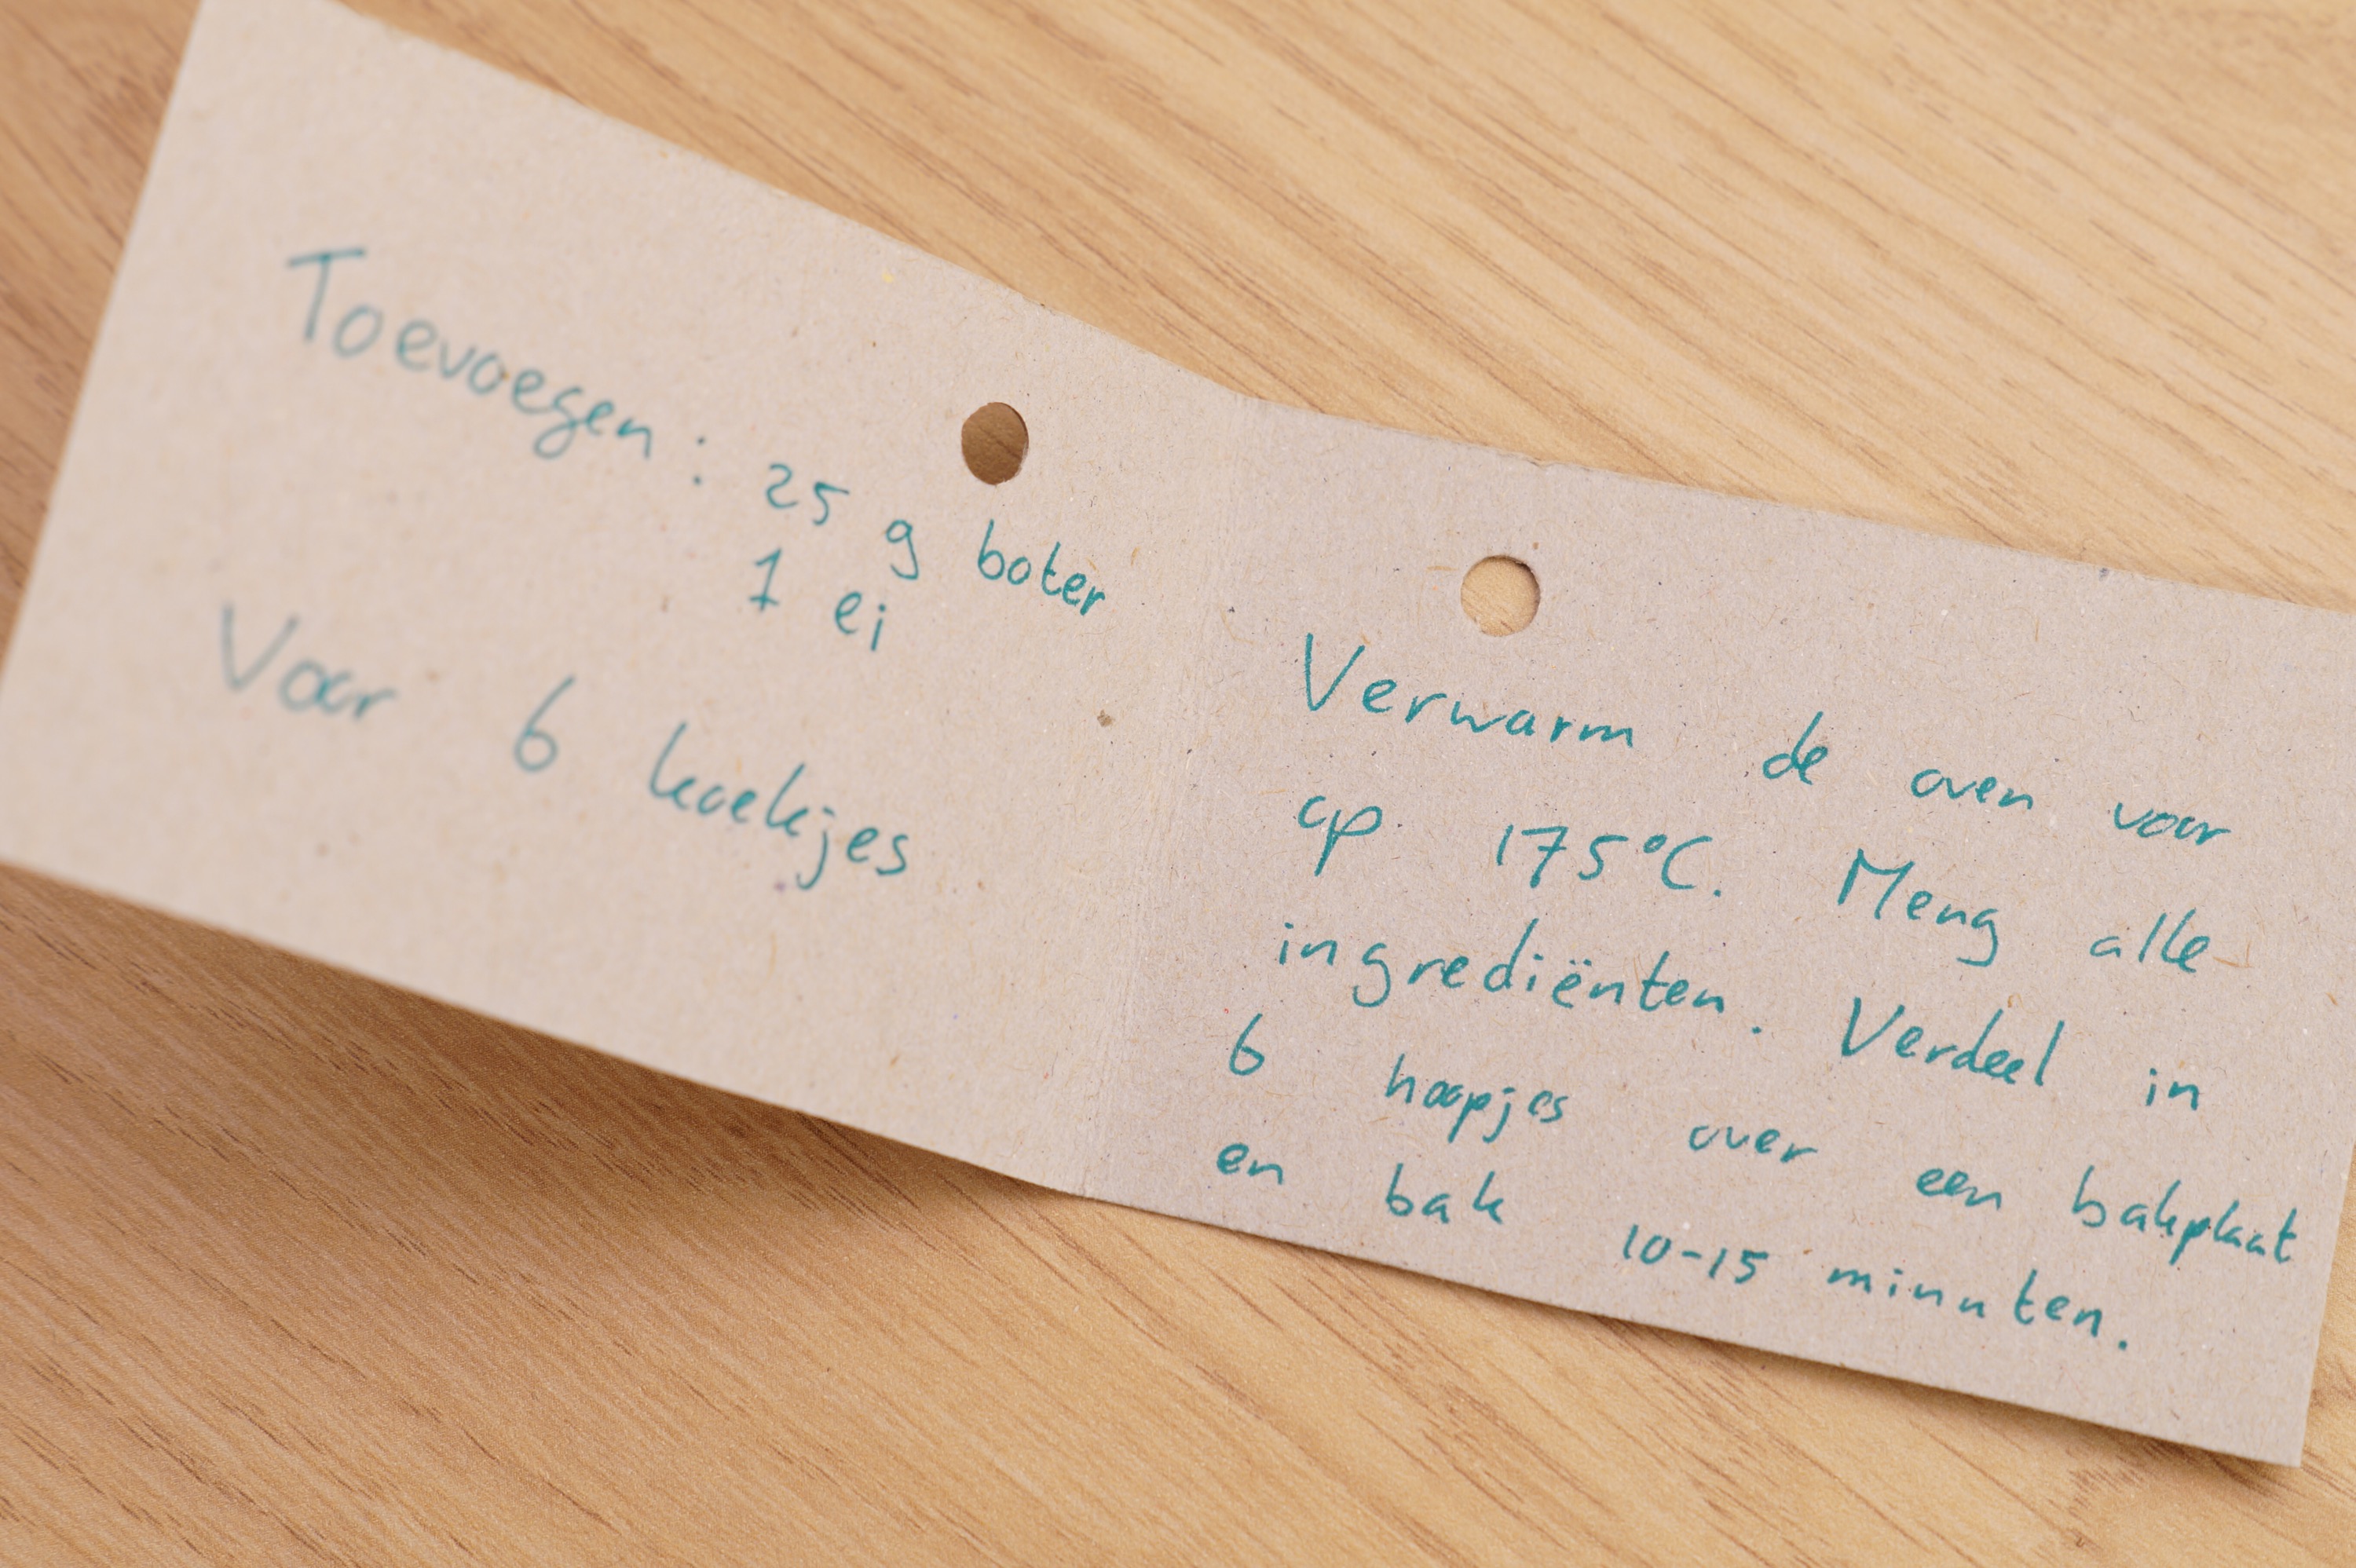 Toevoegen: 25 g boter
1 ei
Voor 6 koekjes
Verwarm de oven voor
op 175°C. Meng alle
ingrediënten. Verdeel in
6 hoopjes over een bakplaat
en bak 10-15 minuten.